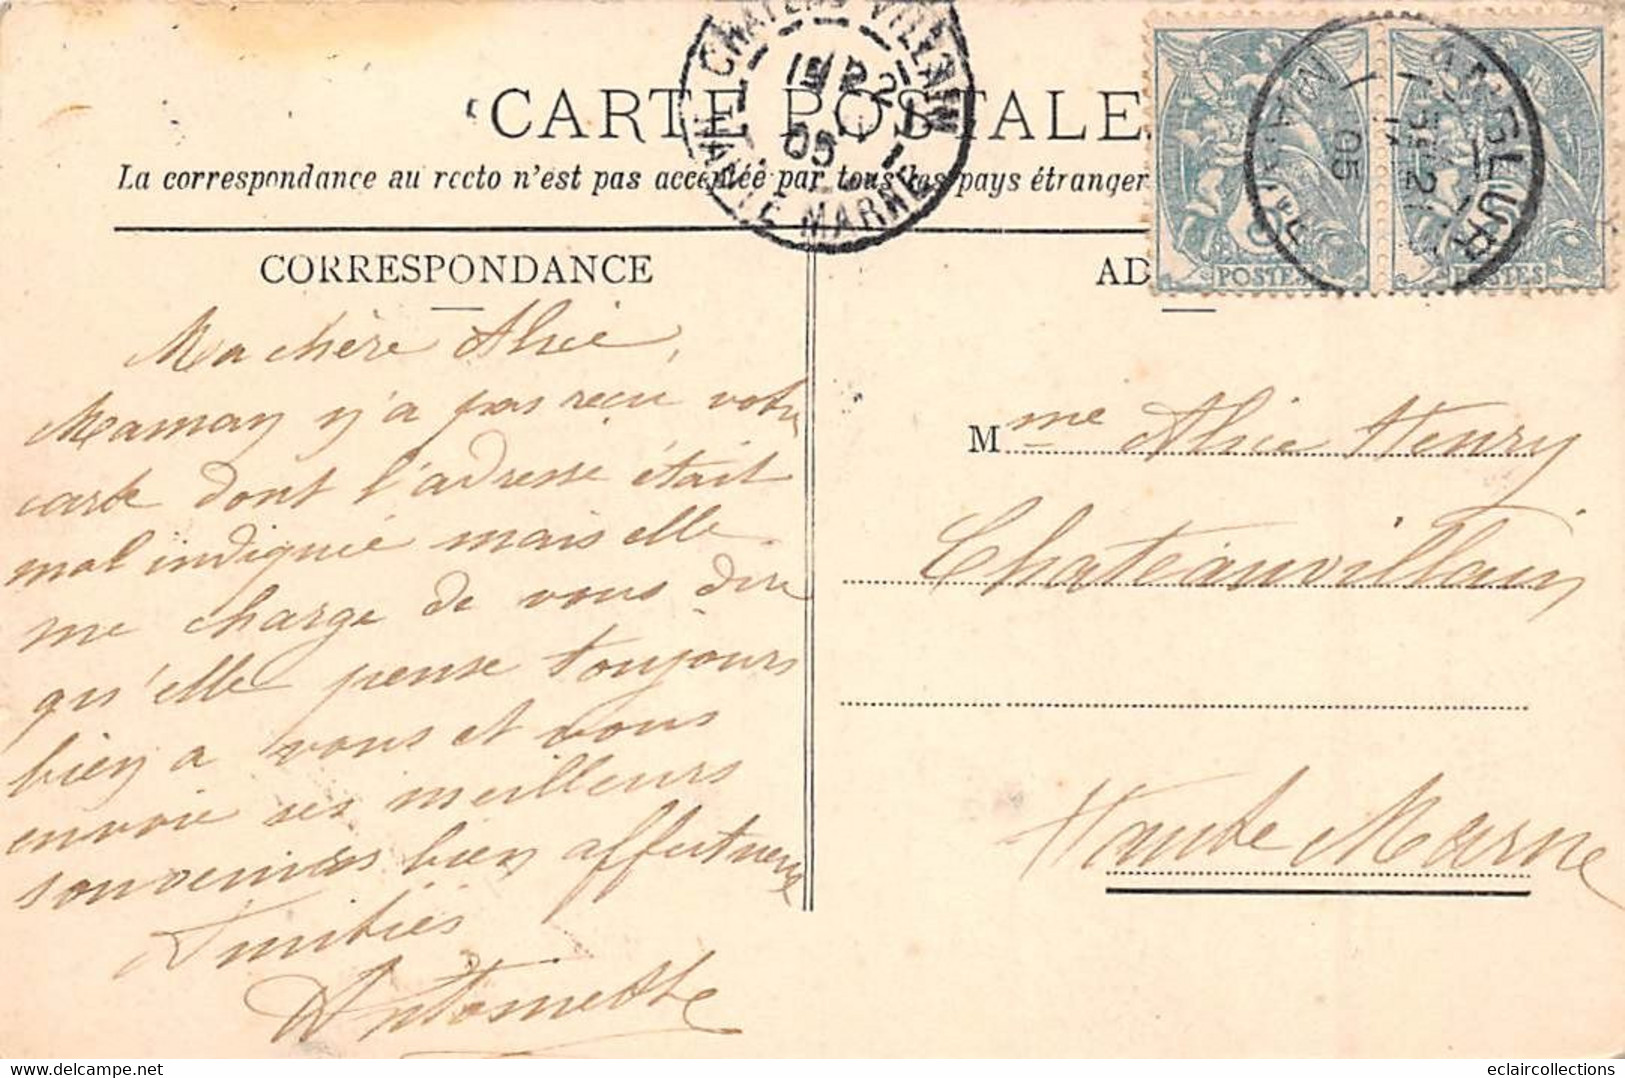 CHATEAUVILLAIN
HAUTE MARNE
05
CARTE POSTALE
La correspondance au recto n'est pas acceptée par tous les pays étranger
CORRESPONDANCE
AD
POSTES
POSTES
ANGLUR
MARNE
05
Ma chère Alice,
Maman n'a pas reçu votre
carte dont l'adresse était
mal indiquée mais elle
me charge de vous dire
qu'elle pense toujours
bien a vous et vous
envoie ses meilleurs
souvenirs bien affectueux
Amitiés
Antoinette
Mme Alice Henry
Chateauvillain
Haute Marne
eclaircollections